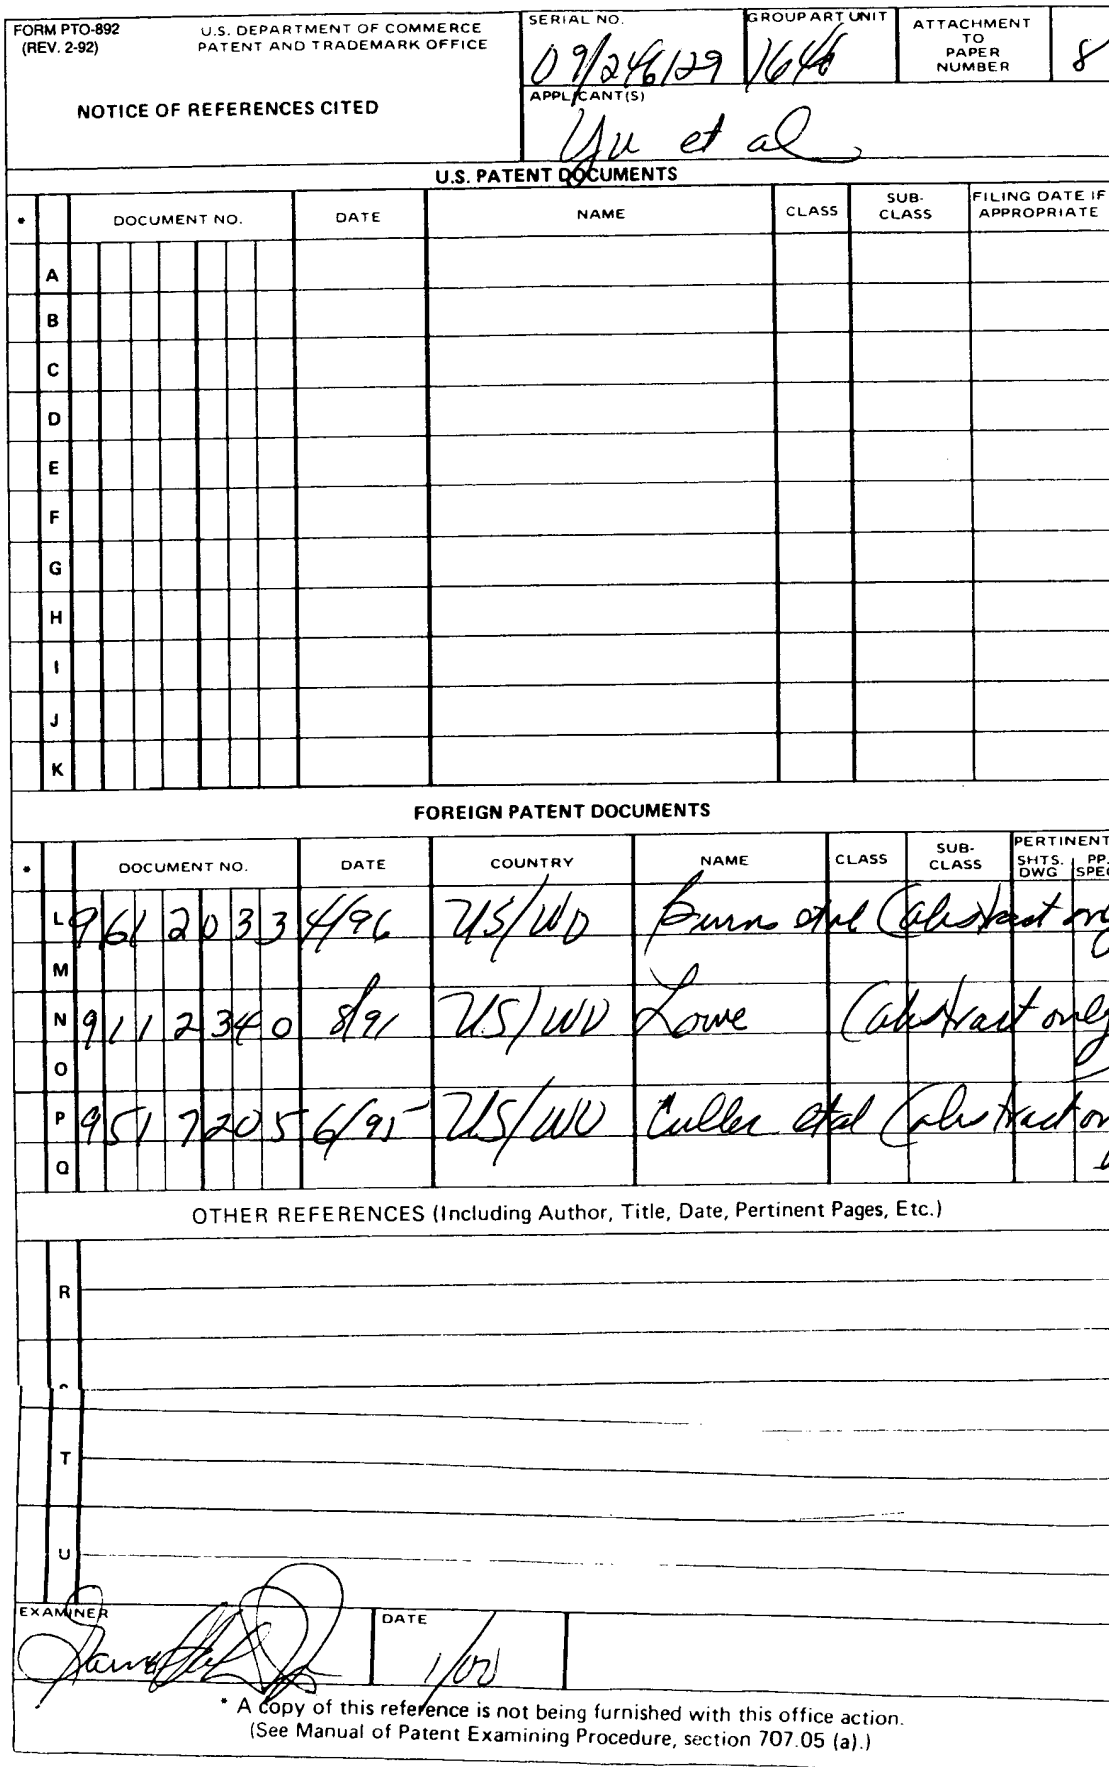 FORM PTO-892 U.S. DEPARTMENT OF COMMERCE
(REV. 2-92) PATENT AND TRADEMARK OFFICE
NOTICE OF REFERENCES CITED
SERIAL NO.
09/246129
GROUP ART UNIT
1646
ATTACHMENT
TO
PAPER
NUMBER
8
APPLICANT(S)
Yu et al
U.S. PATENT DOCUMENTS
* DOCUMENT NO. DATE NAME CLASS SUB-CLASS FILING DATE IF APPROPRIATE
A
B
C
D
E
F
G
H
I
J
K
FOREIGN PATENT DOCUMENTS
* DOCUMENT NO. DATE COUNTRY NAME CLASS SUB-CLASS PERTINENT SHTS. DWG PP. SPEC
L 9612033 4/96 US/WO Burns et al (abstract only
M
N 9112340 8/91 US/WO Lowe (abstract only
O
P 9517205 6/95 US/WO Culler et al (abstract on
Q
OTHER REFERENCES (Including Author, Title, Date, Pertinent Pages, Etc.)
R
T
U
EXAMINER
DATE
1/00
* A copy of this reference is not being furnished with this office action.
(See Manual of Patent Examining Procedure, section 707.05 (a).)